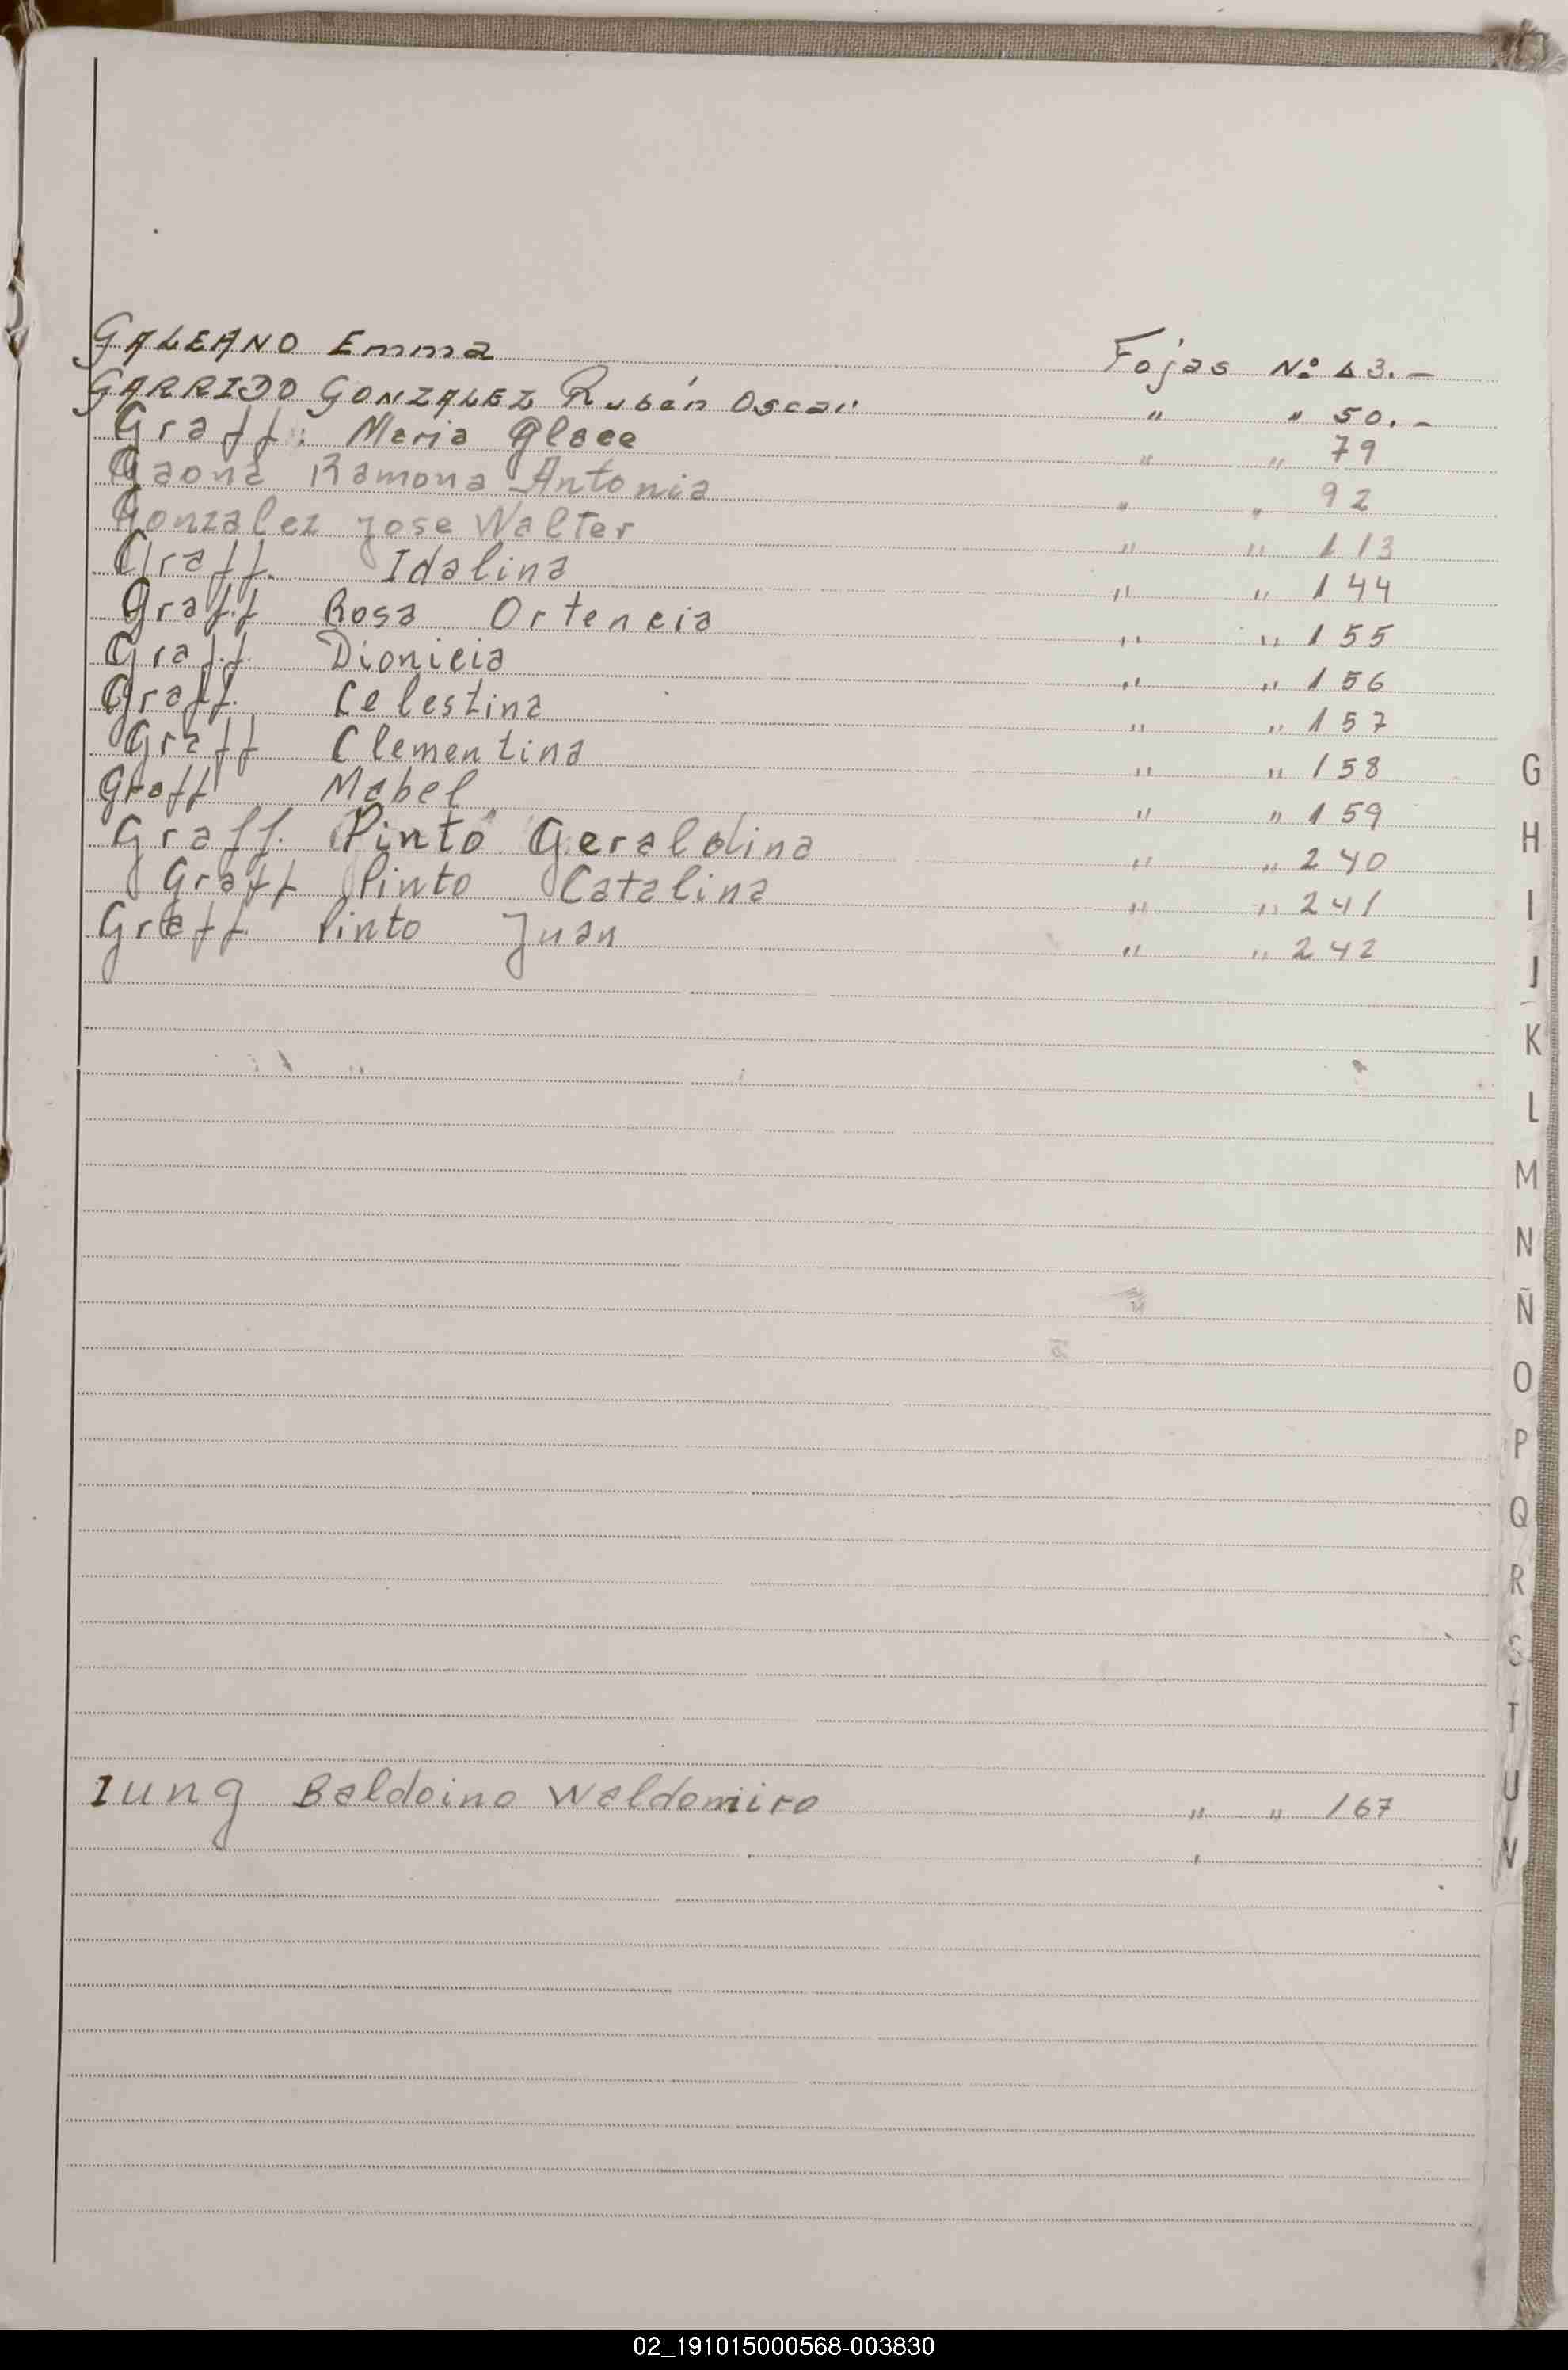 GALEANO Emma Fojas Nº 13.-
GARRIDO GONZALEZ Rubén Oscar " " 50.-
Graff: Maria Glace " " 79
Gaona Ramona Antonia " " 92
Gonzalez Jose Walter " " 113
Graff. Idalina " " 144
Graff Rosa Ortencia " " 155
Graff Dionicia " " 156
Graff. Celestina " " 157
Graff Clementina " " 158
Graff Mabel " " 159
Graff. Pinto Geraldina " " 240
Graff Pinto Catalina " " 241
Graff. Pinto Juan " " 242
Iung Baldoino Waldomiro " " 167
G
H
I
J
K
L
M
N
Ñ
O
P
Q
R
S
T
U
V
02_191015000568-003830